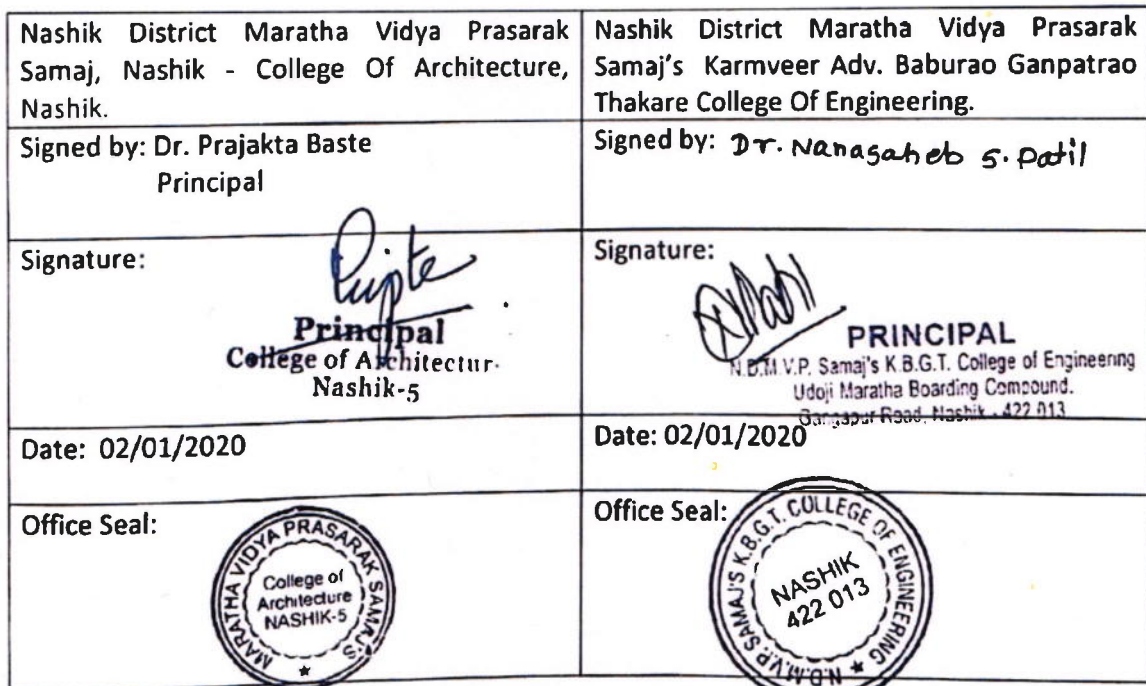 Nashik District Maratha Vidya Prasarak
Samaj, Nashik - College Of Architecture,
Nashik.
Nashik District Maratha Vidya Prasarak
Samaj's Karmveer Adv. Baburao Ganpatrao
Thakare College Of Engineering.
Signed by: Dr. Prajakta Baste
Principal
Signed by: Dr. Nanasaheb S. Patil
Signature:
Principal
College of Architectur
Nashik-5
Signature:
PRINCIPAL
N.D.M.V.P. Samaj's K.B.G.T. College of Engineering
Udoji Maratha Boarding Compound.
Gangapur Road, Nashik - 422 013
Date: 02/01/2020
Date: 02/01/2020
Office Seal:
MARATHA VIDYA PRASARAK SAMAJ'S
College of
Architecture
NASHIK-5
Office Seal:
N.D.M.V.P. SAMAJ'S K.B.G.T. COLLEGE OF ENGINEERING
NASHIK
422 013